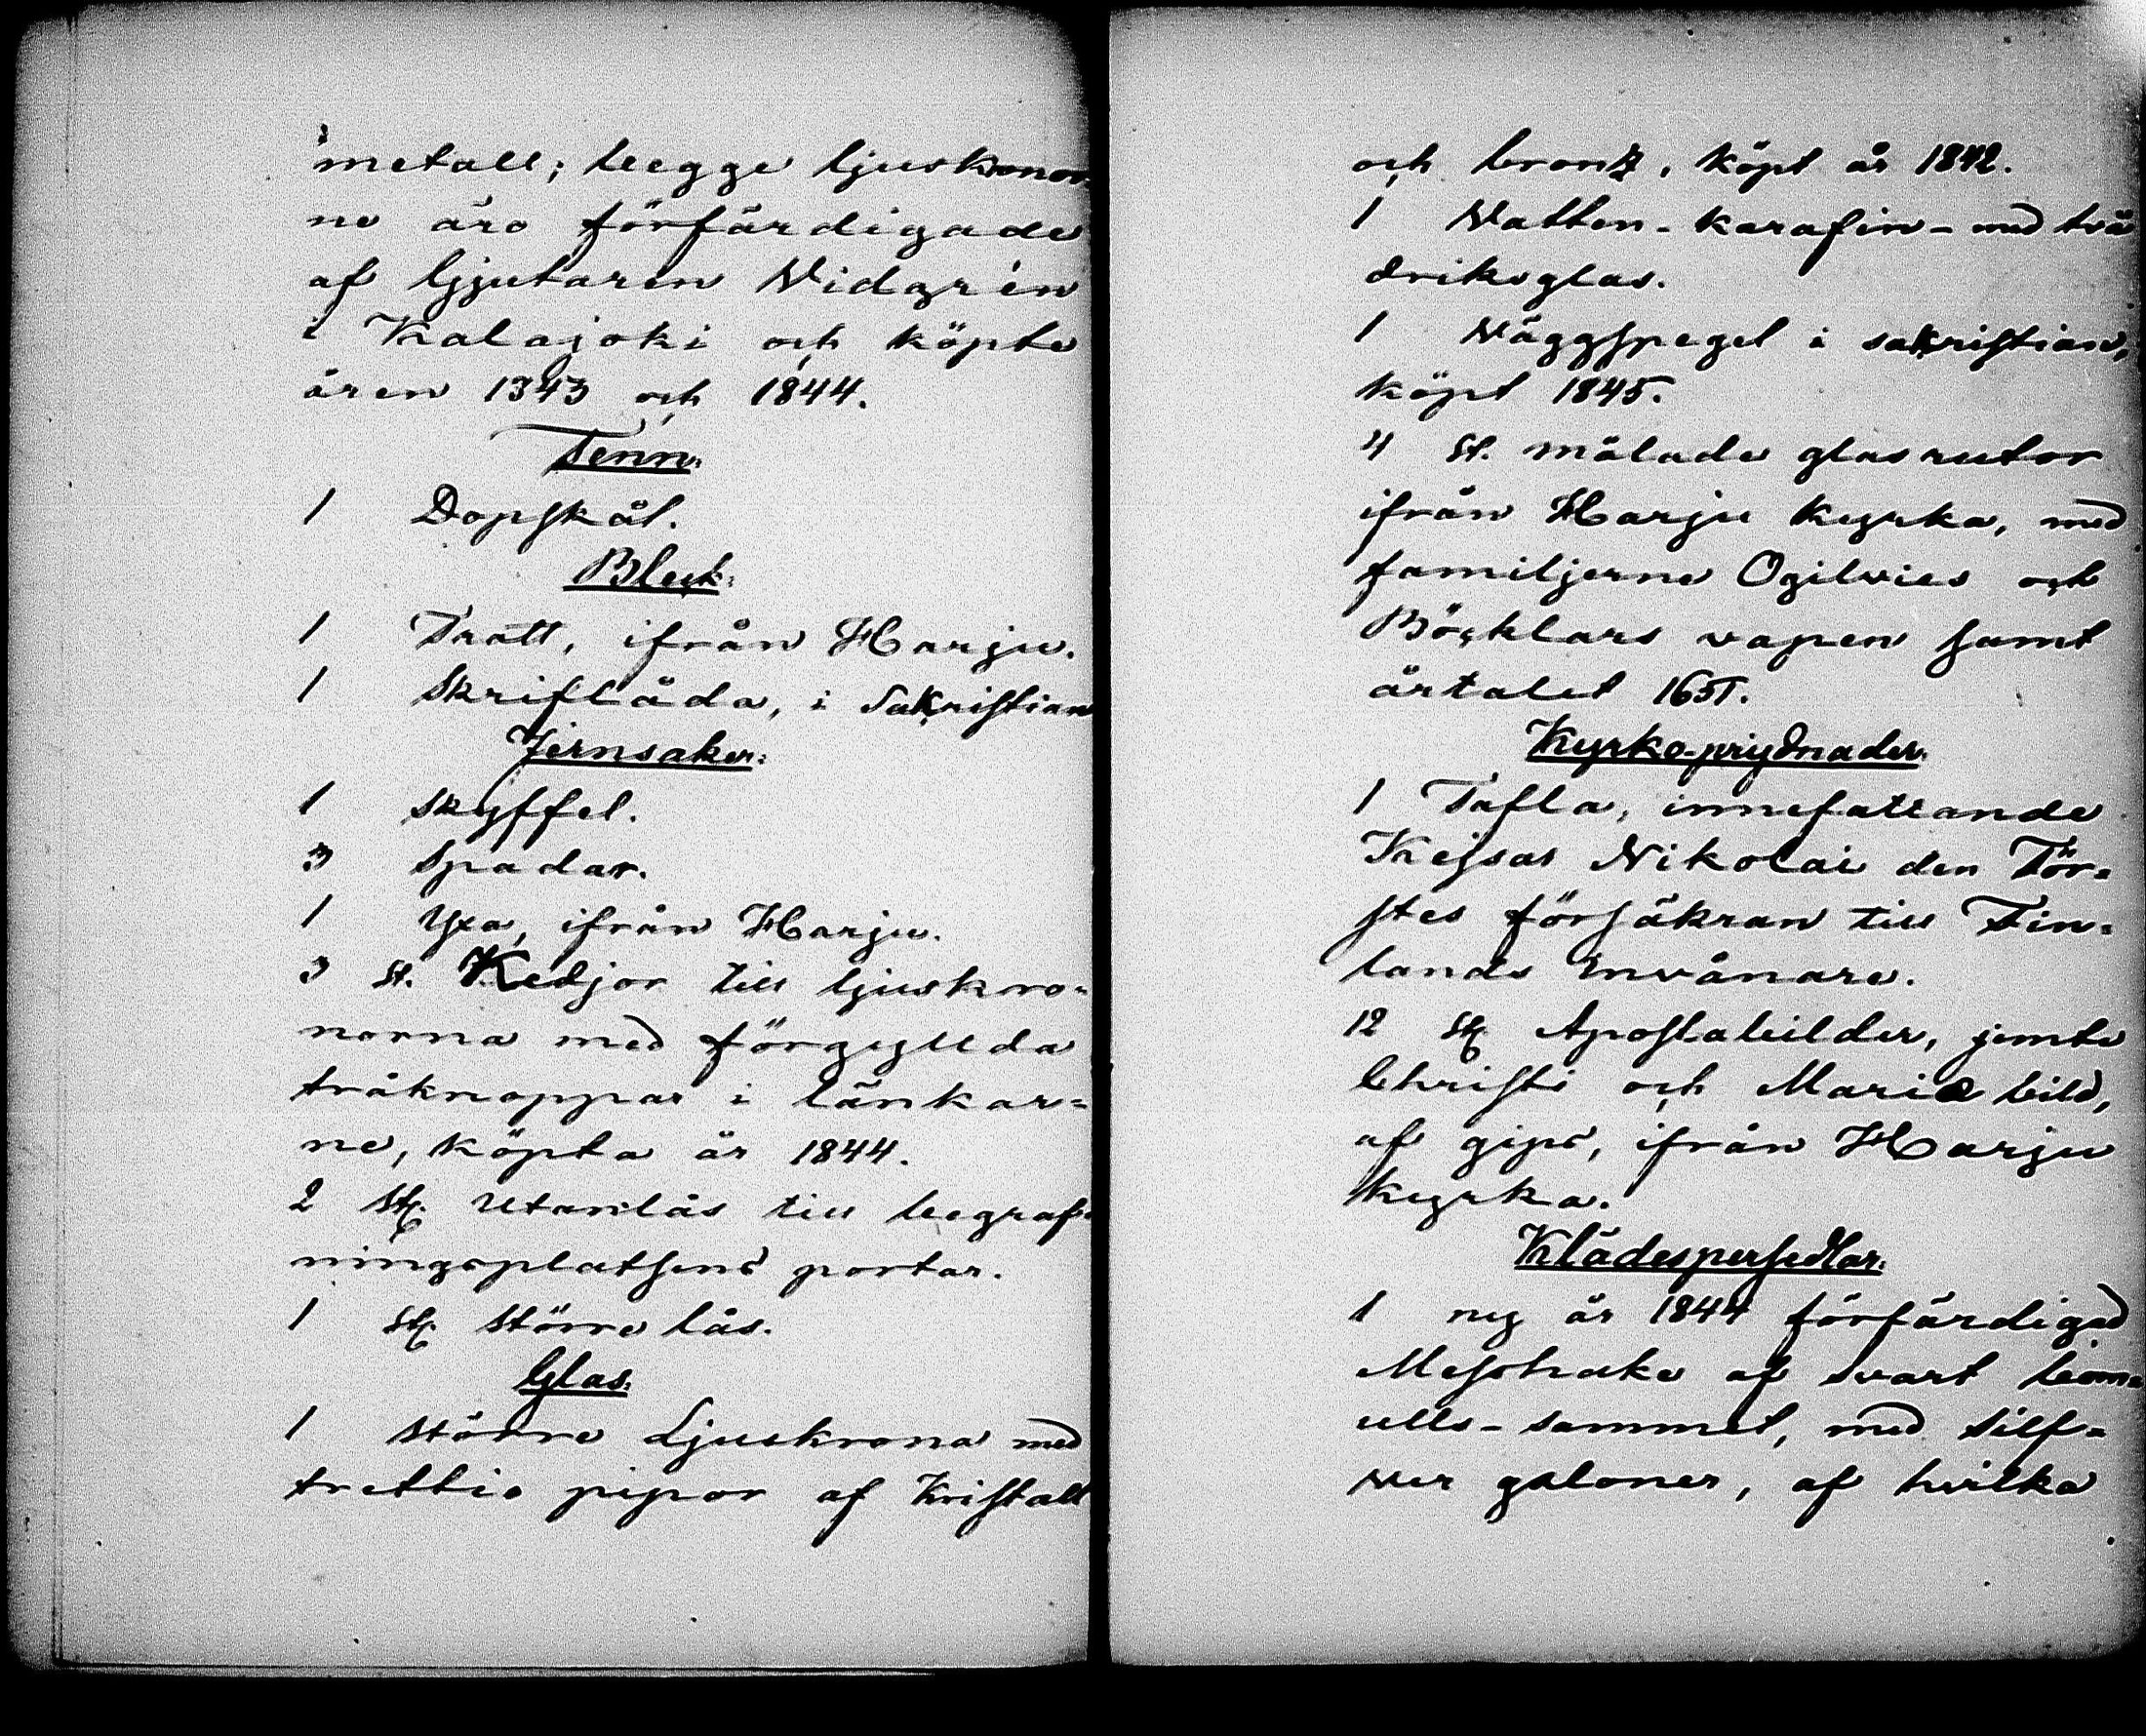 metall; begge ljuskronor-
ne äro förfärdigade
af Gjutaren Widgrén
i Kalajoki och köpte
åren 1843 och 1844.
Tenn:
1 Dopskål.
Bleck:
1 Tratt, ifrån Harju.
1 Skriflåda, i Sakristian
Jernsaker:
1 Skyffel.
3 Spadar.
1 Yxa, ifrån Harju.
3 st. Kedjor till ljuskro-
norna med förgyllda
träknoppar i länkar-
ne, köpta år 1844.
2 st. Utanlås till begraf-
ningsplatsens portar.
1 st. större lås.
Glas:
1 större Ljuskrona med
trettio pipor af Kristall
och bronz, köpt år 1842.
1 Watten-karafin-med två
driksglas.
1 Wäggspegel i sakristian,
köpt 1845.
4 st. målade glasrutor
ifrån Harju kyrka, med
familjerne Ogilvies och
Böcklars vapen samt
årtalet 1651.
Kyrko-prydnader:
1 Tafla, innefattande
Kejsar Nikolai den För-
stes försäkran till Fin-
lands Invånare.
12 st. Apostabilder, jemte
Christi och Mariæ bild,
af gips, ifrån Harju
kyrka.
Klädespersedlar:
1 ny år 1844 förfärdigad
Messhake af svart bom-
ulls-sammet, med silf-
wer galoner, af hvilka